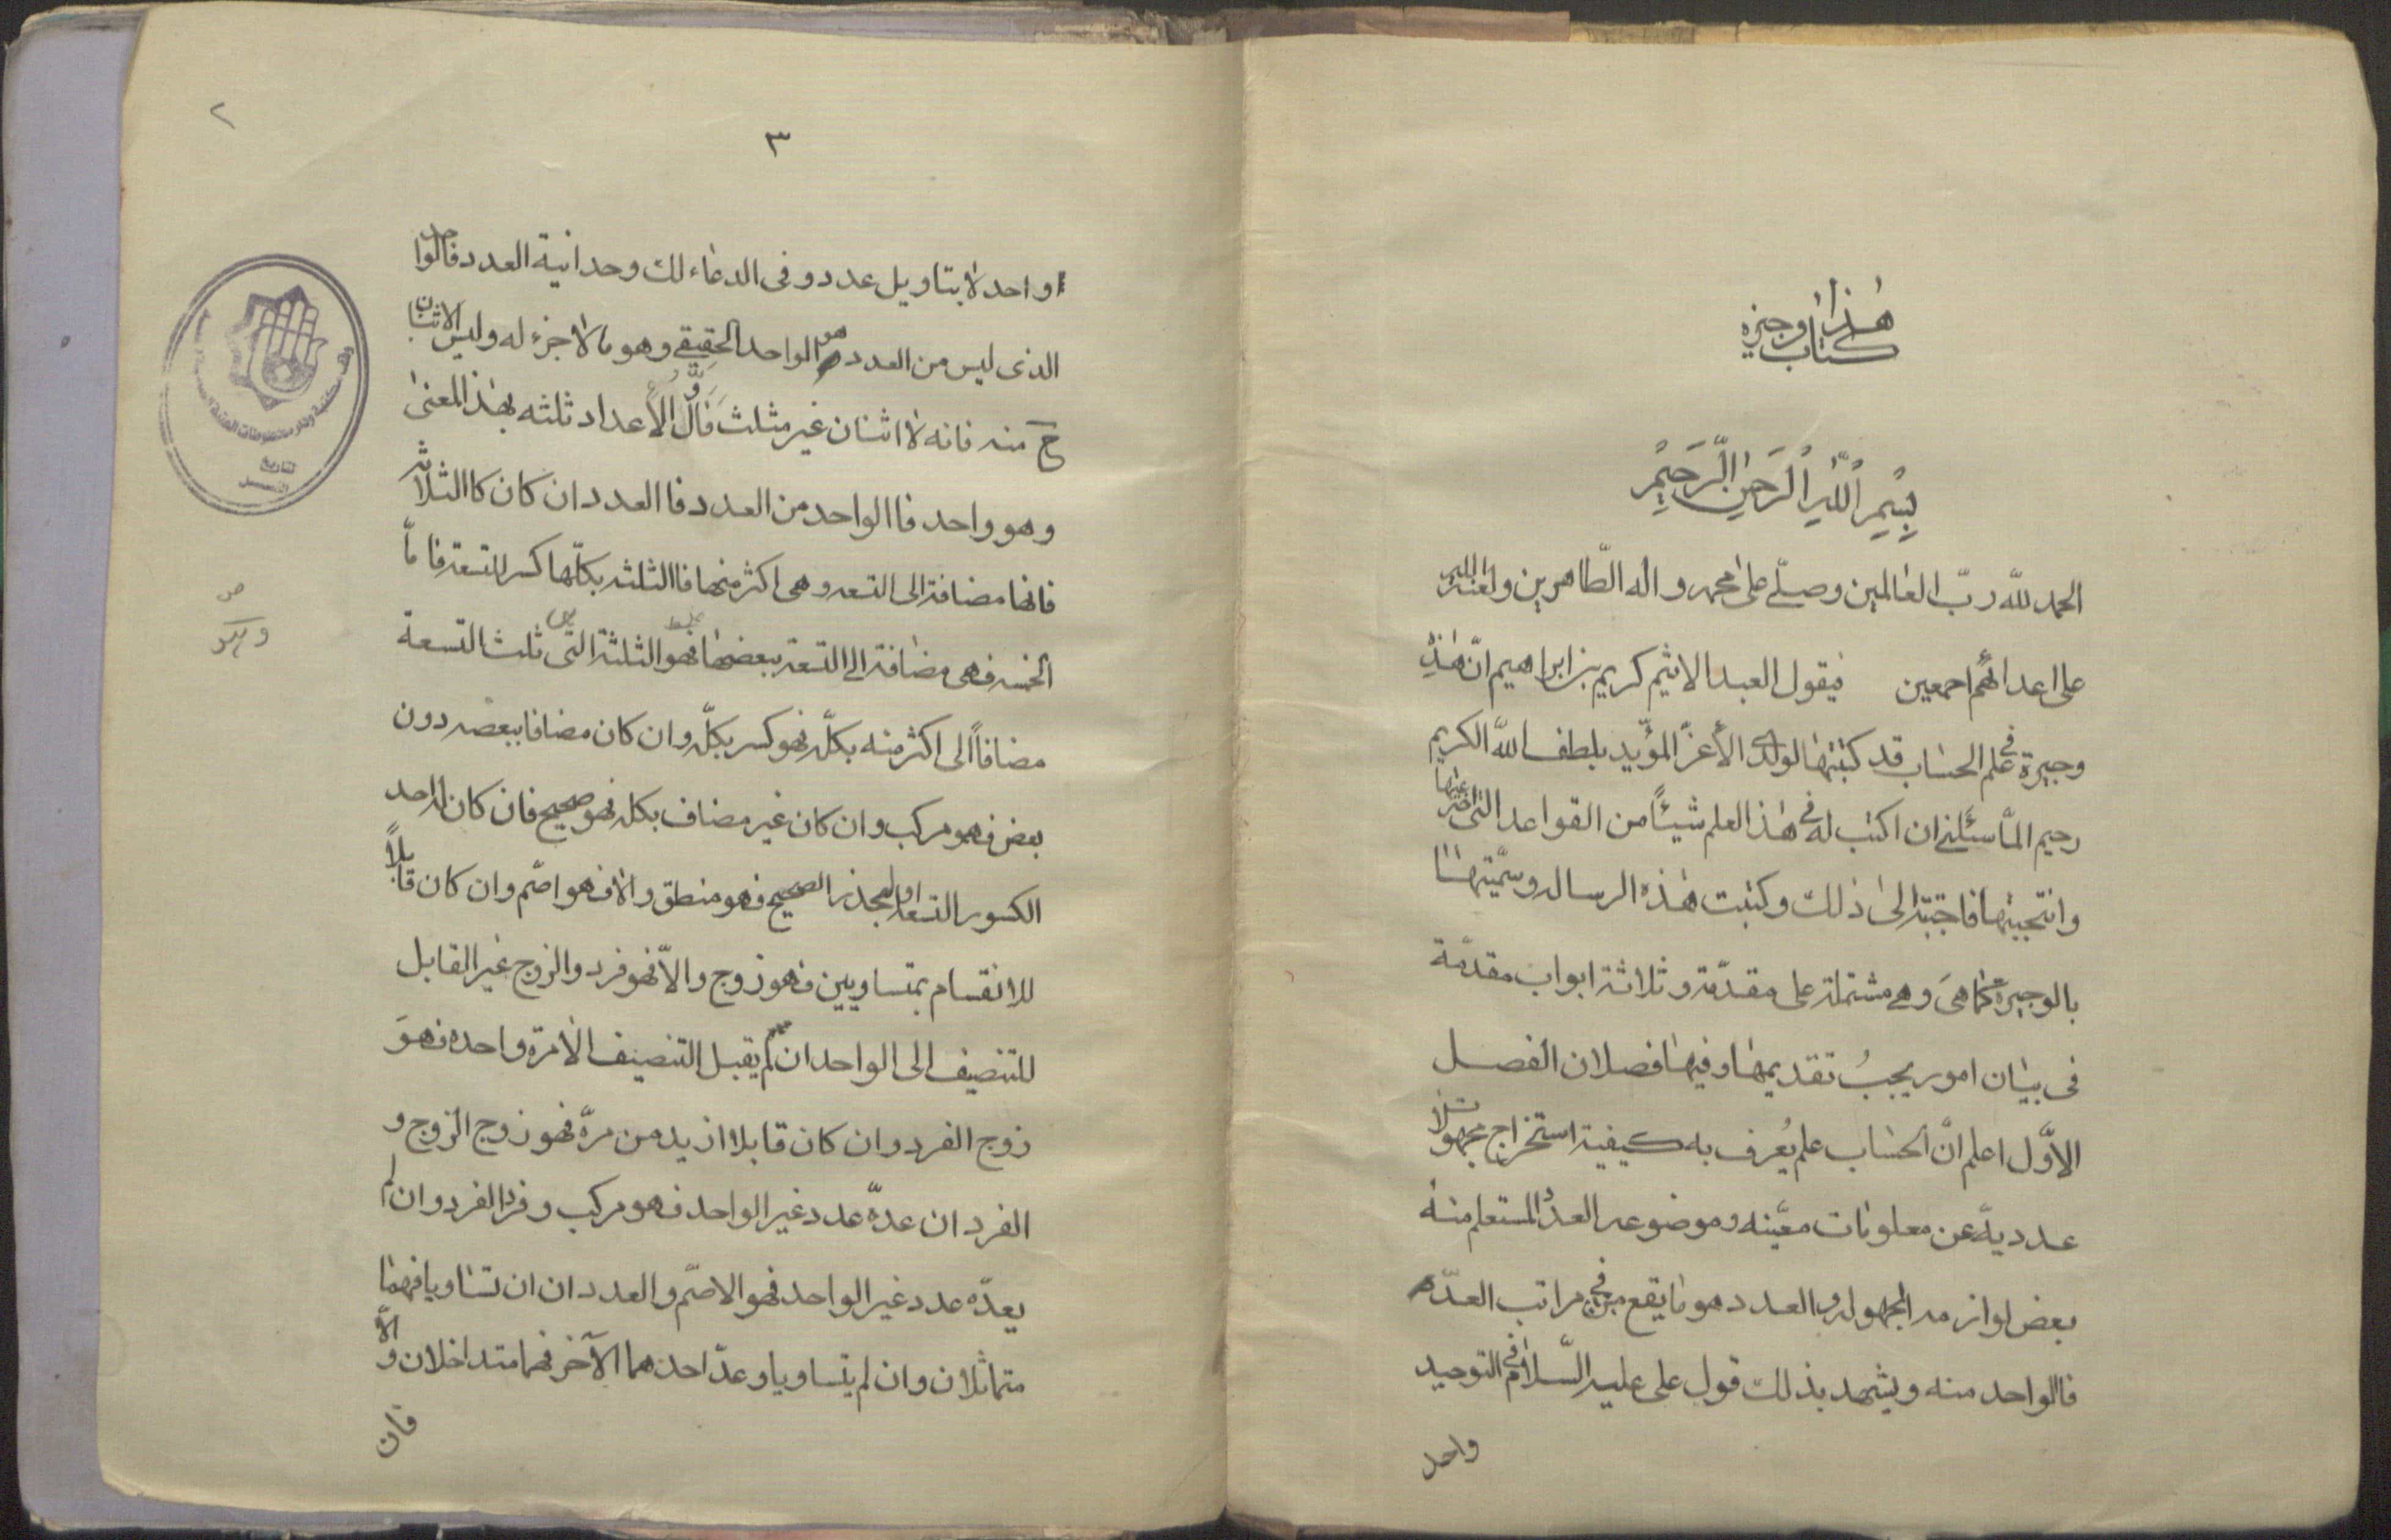 هذا
كتاب وجيزه
بسم الله الرحمن الرحيم
الحمد لله ربّ العالمين وصلّى على محمد واله الطّاهرين ولعنة الله
على اعدائهم اجمعين فيقول العبد الاثيم كريم بن ابراهيم انّ هذه
وجيزة في علم الحساب قد كتبتها لولدى الأعزّ المؤيّد بلطف الله الكريم
رحيم لمّا سئلنى ان اكتب له في هذا العلم شيئاً من القواعد التى
وانتجبتها فاجبته الى ذلك وكتبت هذه الرساله وسمّيتها
بالوجيزة كما هىَ وهى مشتملة على مقدّمة وثلاثة ابواب مقدّمة
فى بيان امور يجبُ تقديمها وفيها فصلان الفصل
الاوّل اعلم انّ الحساب علم يُعرف به كيفية استخراج مجهولات
عدديّة عن معلومات معيّنه وموضوعه العدد المستعلم منه
بعض لوازمه المجهوله والعدد هو ما يقع في مراتب العدّ
فالواحد منه ويشهد بذلك قول على عليه السّلام في التوحيد
واحد
٣
٢
واحد لا بتاويل عدد وفى الدعاء لك وحدانية العدد فالواحد
الذى ليس من العدد هو الواحد الحقيقى وهو ما لا جزء له وليس الاثنان
ح منه فانه لا اثنان غير مثلث فاوّل الأعداد ثلثه بهذا المعنى
وهو واحد فاالواحد من العدد فاالعدد ان كان كاالثلاثه
فانها مضافة الى التسعه وهى اكثر منها فاالثلثه بكلّها كسر للتسعة فامّا
الخمسه فهى مضافة الى التسعة ببعضها فهو الثلثة التى ثلث التسعة
مضافاً الى اكثر منه بكلّه فهو كسر بكلّه وان كان مضافا ببعضه دون
بعض فهو مركب وان كان غير مضاف بكله فهو صحيح فان كان له احد
الكسور التسعة او الجذر الصحيح فهو منطق والاف هو اصّم وان كان قابلاً
للانقسام بمتساويين فهو زوج والاّ فهو فرد والزوج غير القابل
للتنصيف الى الواحد ان لم يقبل التنصيف الا مرة واحده فهوَ
زوج الفرد وان كان قابلا ازيد من مرّة فهو زوج الزوج و
الفرد ان عدّه عدد غير الواحد فهو مركب وفرد الفرد وان لم
يعدّه عدد غير الواحد فهو الاصّم والعددان ان تساويا فهما
متماثلان وان لم يتساويا وعدّ احدهما الآخر فهما متداخلان والّا
فان